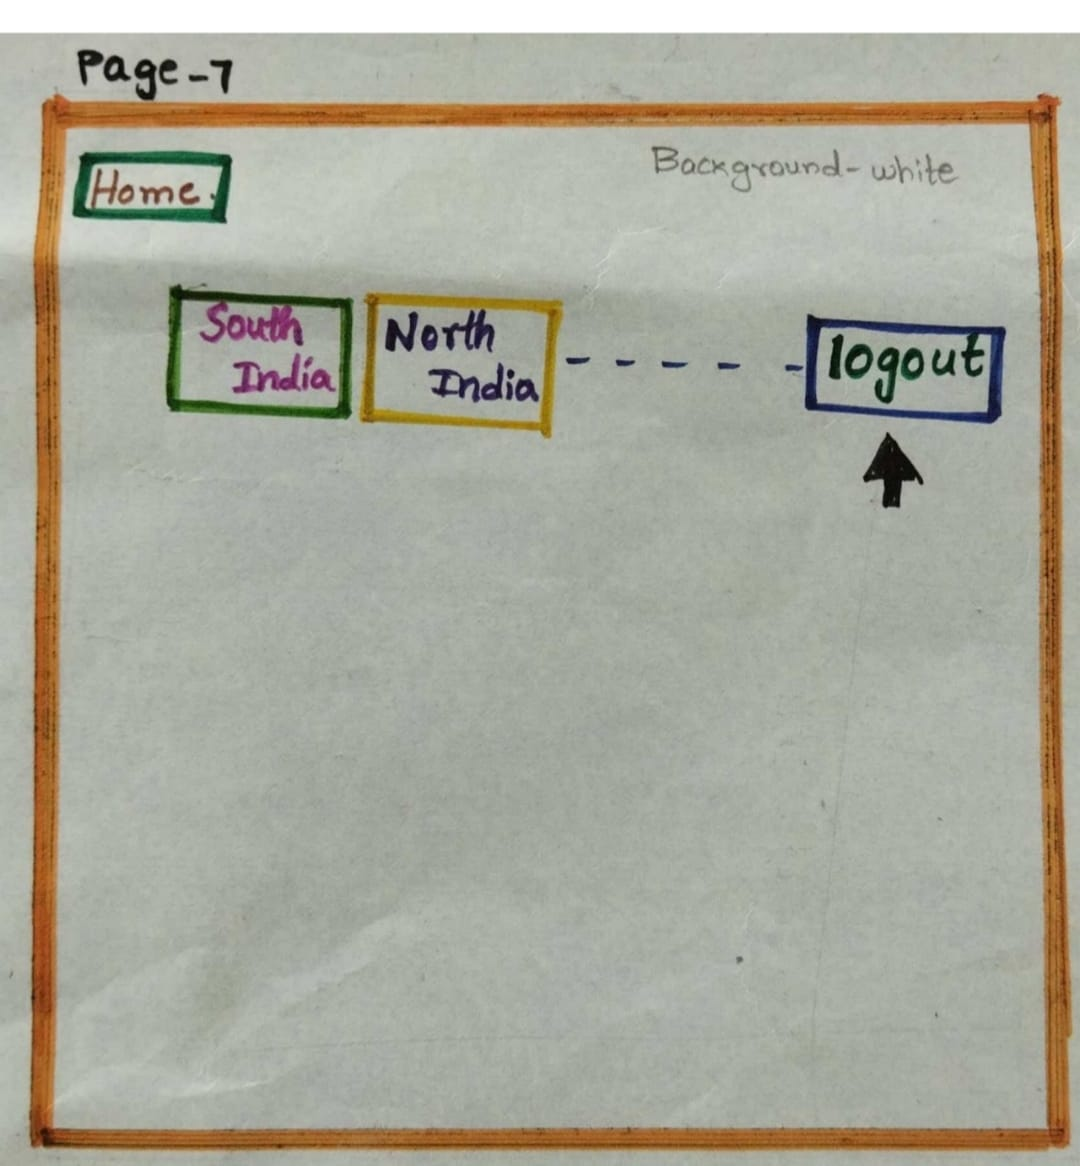 Page-7
Home.
Background-white
South
India
North
India
logout